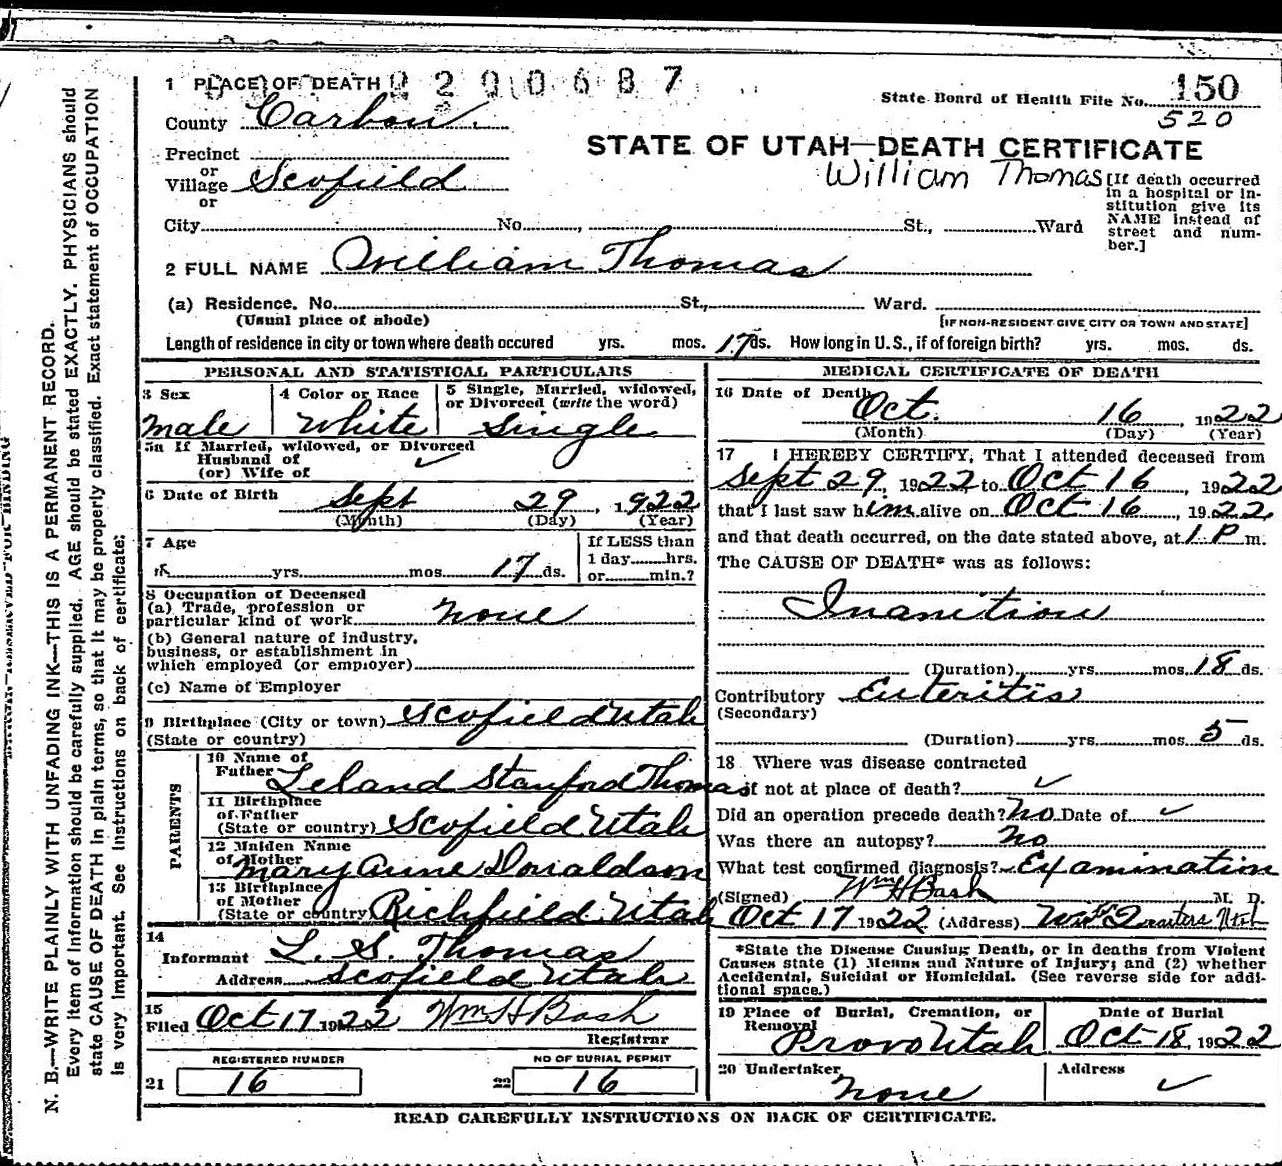 1 PLACE OF DEATH 2200687
State Board of Health File No. 150
520
County Carbon
STATE OF UTAH—DEATH CERTIFICATE
William Thomas
Precinct
or
Village Scofield
or
City No. St., Ward
[If death occurred
in a hospital or in-
stitution give its
NAME instead of
street and num-
ber.]
2 FULL NAME William Thomas
(a) Residence. No. St., Ward.
(Usual place of abode) [IF NON-RESIDENT GIVE CITY OR TOWN AND STATE]
Length of residence in city or town where death occured yrs. mos. 17 ds. How long in U. S., if of foreign birth? yrs. mos. ds.
PERSONAL AND STATISTICAL PARTICULARS
3 Sex
male
4 Color or Race
White
5 Single, Married, widowed,
or Divorced (write the word)
Single
5a If Married, widowed, or Divorced
Husband of
(or) Wife of
6 Date of Birth Sept 29, 1922
(Month) (Day) (Year)
7 Age
yrs. mos. 17 ds.
If LESS than
1 day hrs.
or min.?
8 Occupation of Deceased
(a) Trade, profession or
particular kind of work none
(b) General nature of industry,
business, or establishment in
which employed (or employer)
(c) Name of Employer
9 Birthplace (City or town) Scofield Utah
(State or country)
PARENTS
10 Name of
Father Leland Stanford Thomas
11 Birthplace
of Father
(State or country) Scofield Utah
12 Maiden Name
of Mother Mary Anne Donaldson
13 Birthplace
of Mother
(State or country) Richfield Utah
14
Informant L. S. Thomas
Address Scofield Utah
15
Filed Oct 17 1922 Wm H Bash
Registrar
REGISTERED NUMBER
21 16
NO OF BURIAL PERMIT
22 16
MEDICAL CERTIFICATE OF DEATH
16 Date of Death
Oct. 16, 1922
(Month) (Day) (Year)
17 I HEREBY CERTIFY, That I attended deceased from
Sept 29, 1922 to Oct 16, 1922
that I last saw him alive on Oct 16, 1922
and that death occurred, on the date stated above, at 1 P m.
The CAUSE OF DEATH* was as follows:
Inanition
(Duration) yrs. mos. 18 ds.
Contributory Enteritis
(Secondary)
(Duration) yrs. mos. 5 ds.
18 Where was disease contracted
if not at place of death?
Did an operation precede death? No Date of
Was there an autopsy? no
What test confirmed diagnosis? Examination
(Signed) Wm H Bash M. D.
Oct 17 1922 (Address) Utah
*State the Disease Causing Death, or in deaths from Violent
Causes state (1) Means and Nature of Injury; and (2) whether
Accidental, Suicidal or Homicidal. (See reverse side for addi-
tional space.)
19 Place of Burial, Cremation, or
Removal
Provo Utah
Date of Burial
Oct 18, 1922
20 Undertaker
none
Address
READ CAREFULLY INSTRUCTIONS ON BACK OF CERTIFICATE.
N. B.—WRITE PLAINLY WITH UNFADING INK—THIS IS A PERMANENT RECORD.
Every item of information should be carefully supplied. AGE should be stated EXACTLY. PHYSICIANS should
state CAUSE OF DEATH in plain terms, so that it may be properly classified. Exact statement of OCCUPATION
is very important. See instructions on back of certificate;